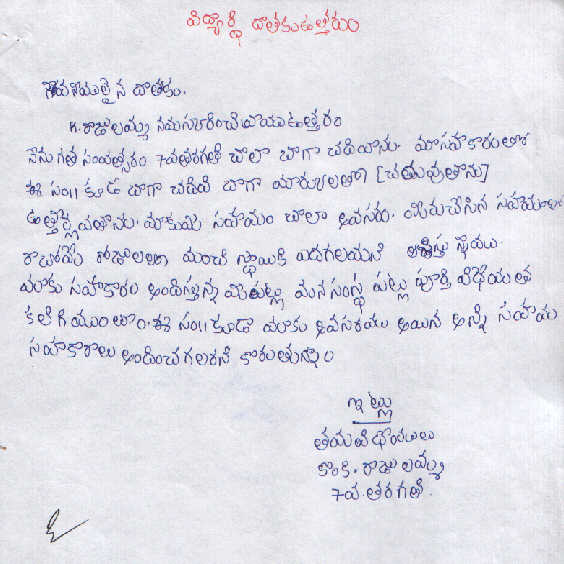 విద్యార్థి దాతకు ఉత్తరం
గౌరవనీయులైన దాతకు.
K. రాజులమ్మ నమస్కరించి వ్రాయు ఉత్తరం
నేను గత సంవత్సరం 7వ తరగతి చాలా బాగా చదివాను. మీ సహకారంతో
ఈ సం॥ కూడ బాగా చదివి బాగా మార్కులతో [చదువుతాను]
ఉత్తీర్ణురవుతాను. మాకు మీ సహాయం చాలా అవసరం. మీరు చేసిన సహాయంతో
రాబోయే రోజులలో మంచి స్థాయికి ఎదగలమని ఆశిస్తున్నాము.
మాకు సహకారం అందిస్తున్న మీ పట్ల మన సంస్థ పట్ల పూర్తి విధేయత
కలిగియుంటాం. ఈ సం॥ కూడా మాకు అవసరము అయిన అన్ని సహాయ
సహకారాలు అందించగలరని కోరుతున్నాం
ఇట్లు
తమ విధేయులు
కొంకి. రాజులమ్మ
7వ. తరగతి.